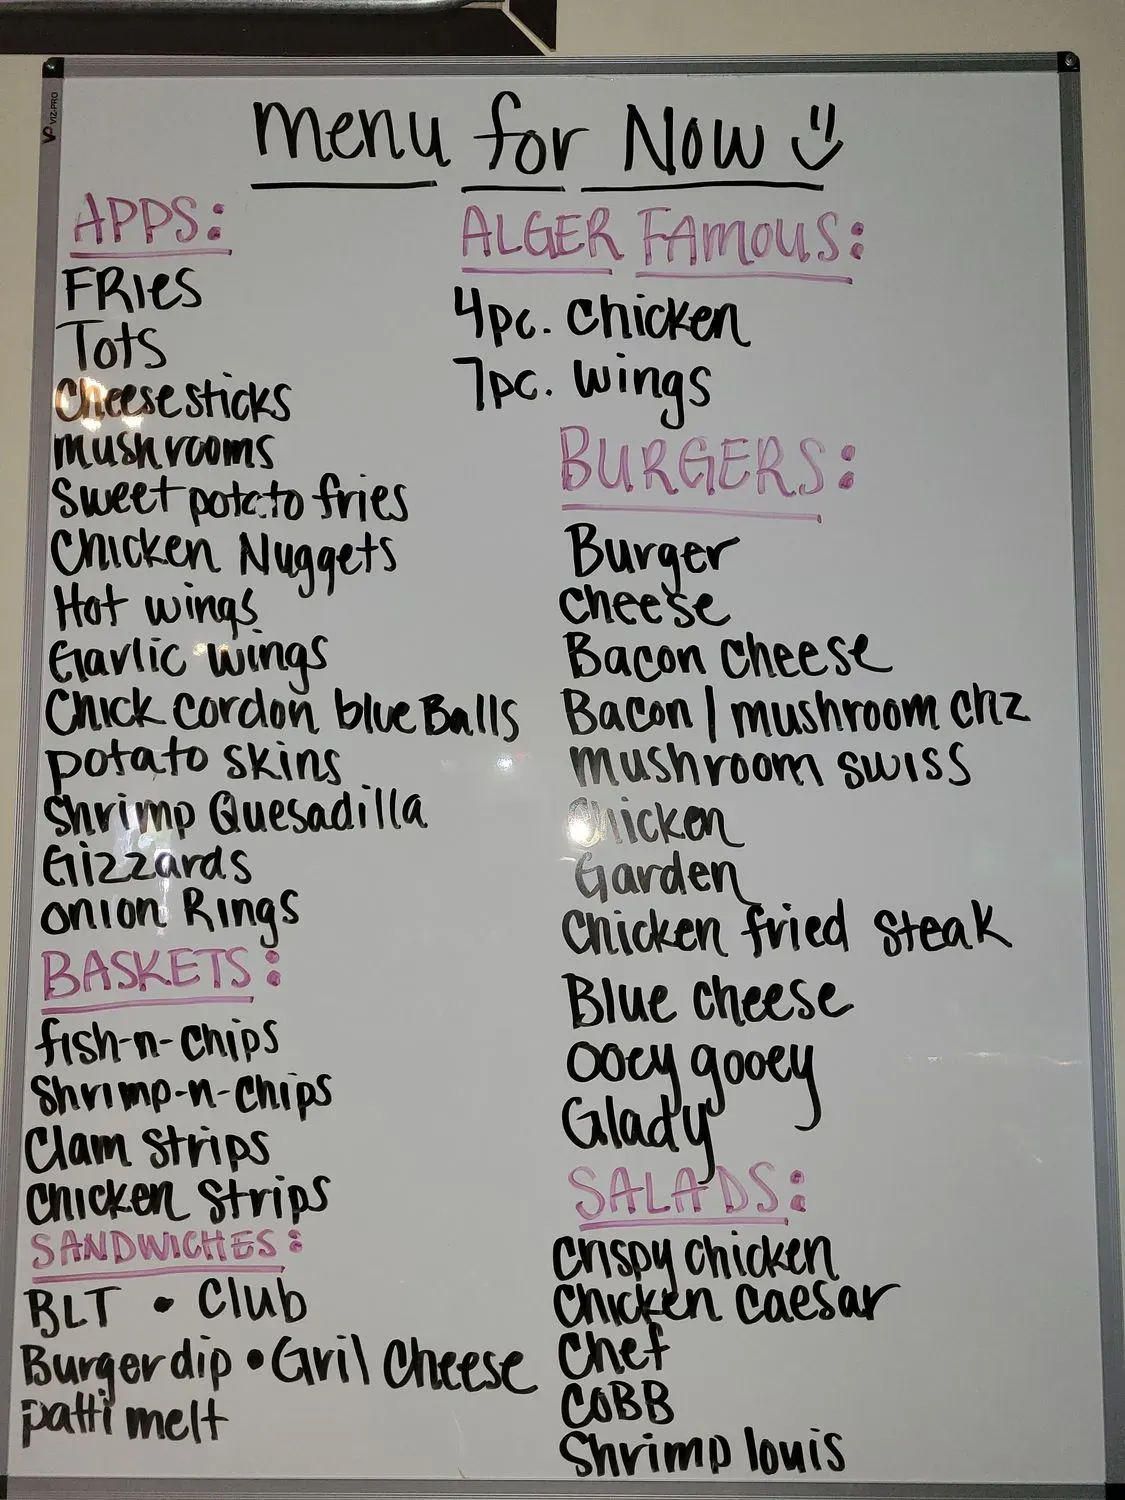 VIZ-PRO
Menu for Now
APPS:
FRies
Tots
Cheese sticks
mushrooms
Sweet potato fries
Chicken Nuggets
Hot wings
Garlic wings
Chick cordon blue Balls
potato skins
Shrimp Quesadilla
Gizzards
onion Rings
BASKETS:
fish-n-chips
Shrimp-n-chips
Clam strips
Chicken Strips
SANDWICHES:
BLT • Club
Burger dip • Gril Cheese
patti melt
ALGER FAMOUS:
4pc. Chicken
7pc. wings
BURGERS:
Burger
cheese
Bacon cheese
Bacon / mushroom chz
mushroom swiss
Chicken
Garden
Chicken fried steak
Blue cheese
ooey gooey
Glady
SALADS:
Crispy chicken
Chicken caesar
Chef
COBB
Shrimp louis